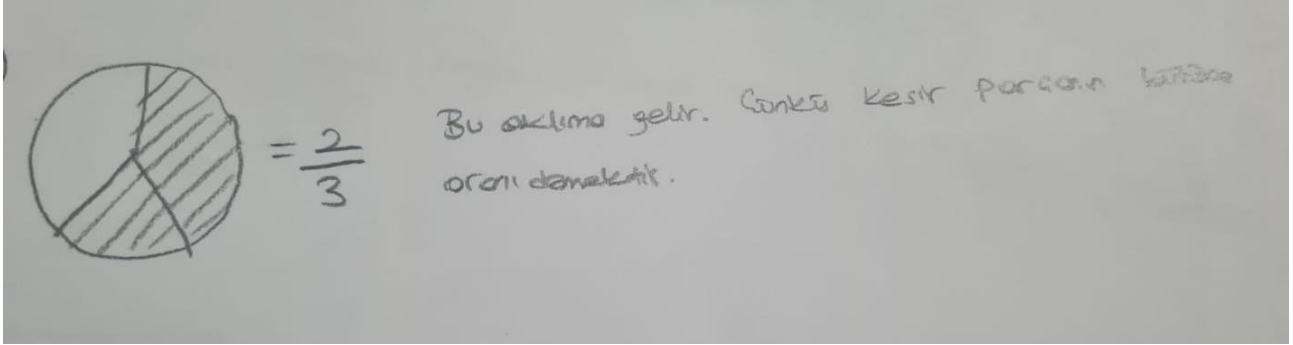 = 2/3
Bu aklıma gelir. Çünkü kesir parçanın bütüne
oranı demektir.